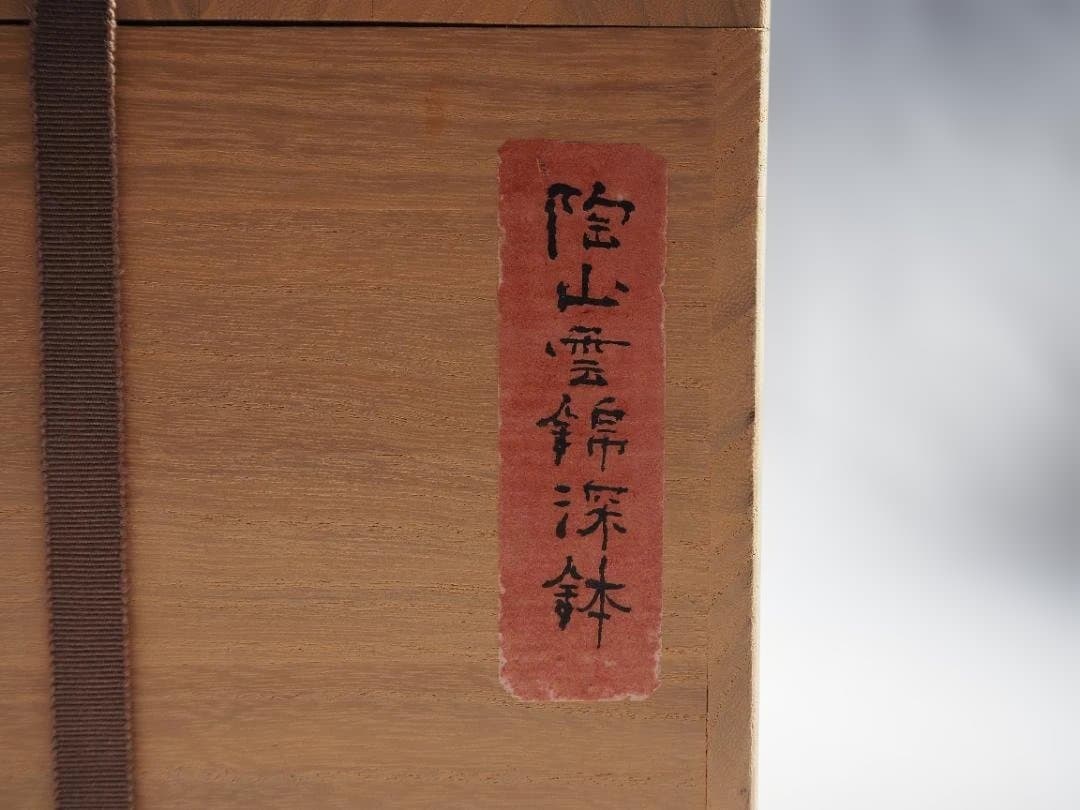 陶山雲錦深鉢